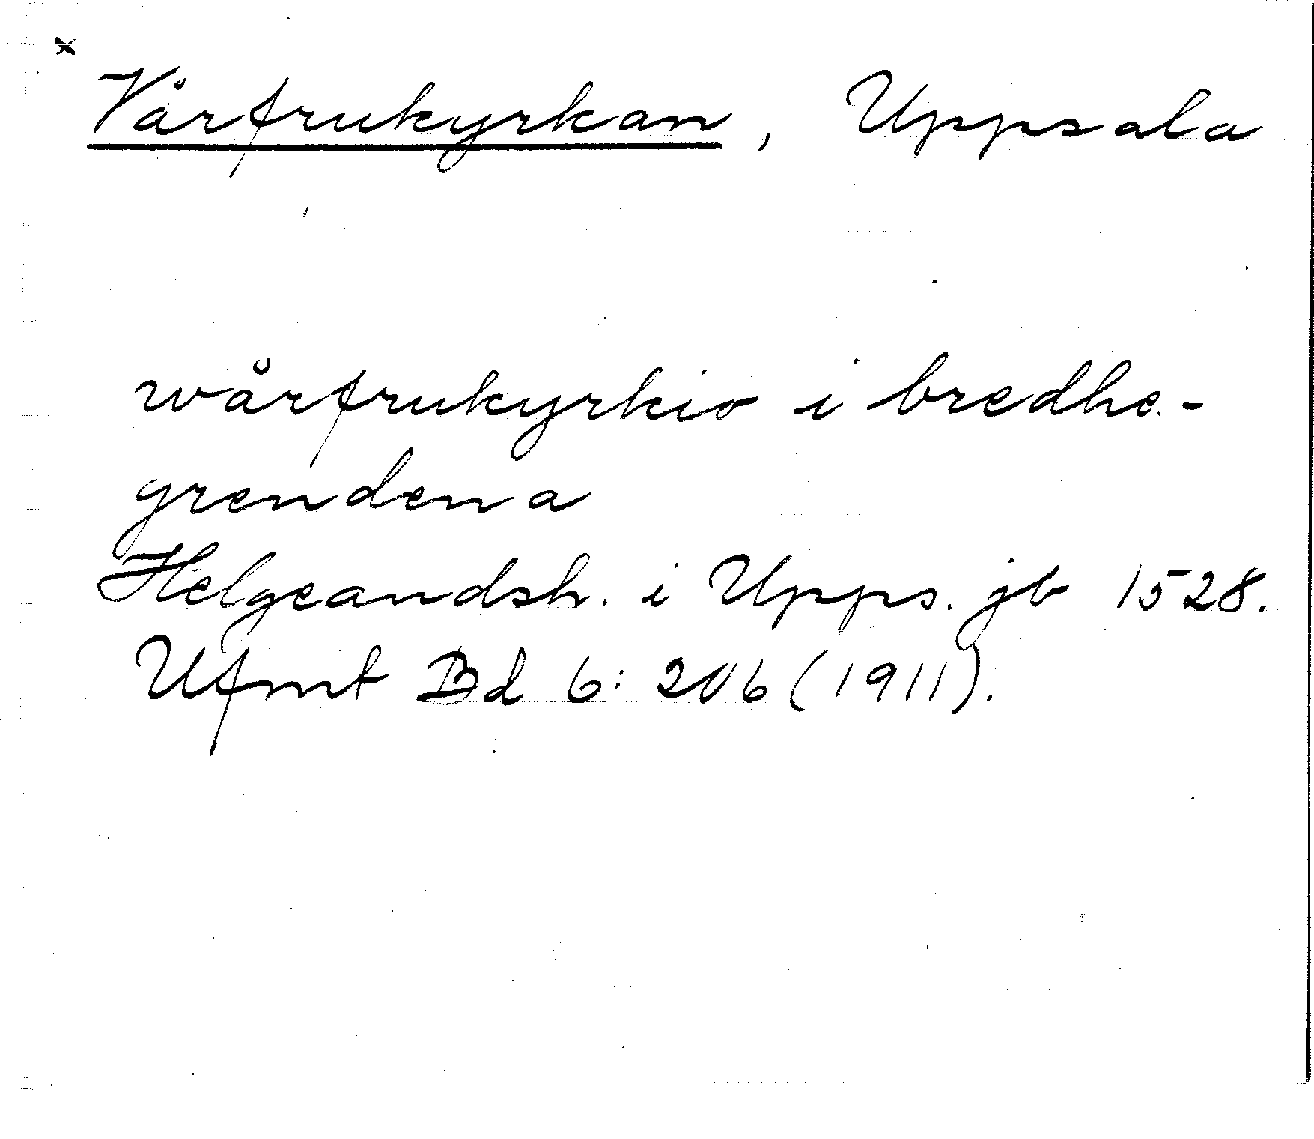 x
Vårfrukyrkan, Uppsala
wårfrukyrkio i bredhe-
grendena
Helgeandsh. i Upps. jb 1528.
Ufmt Bd 6: 206 (1911).